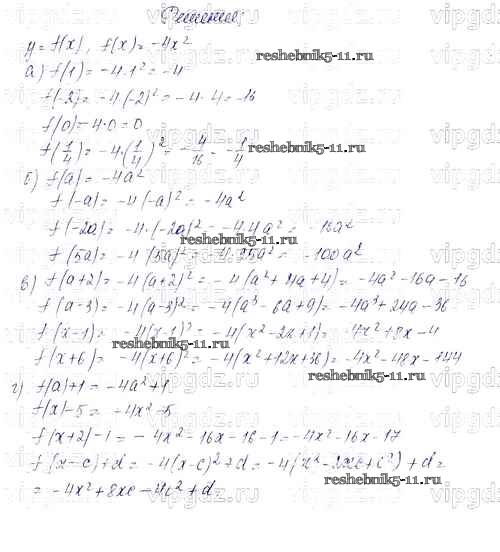 Решение
y = f(x), f(x) = -4x²
а) f(1) = -4·1² = -4
f(-2) = -4(-2)² = -4·4 = -16
f(0) = -4·0 = 0
f(1/4) = -4·(1/4)² = -4/16 = -1/4
б) f(a) = -4a²
f(-a) = -4(-a)² = -4a²
f(-2a) = -4·(-2a)² = -4·4a² = -16a²
f(5a) = -4(5a)² = -4·25a² = -100a²
в) f(a+2) = -4(a+2)² = -4(a²+4a+4) = -4a²-16a-16
f(a-3) = -4(a-3)² = -4(a²-6a+9) = -4a²+24a-36
f(x-1) = -4(x-1)² = -4(x²-2x+1) = -4x²+8x-4
f(x+6) = -4(x+6)² = -4(x²+12x+36) = -4x²-48x-144
г) f(a)+1 = -4a²+1
f(x)-5 = -4x²-5
f(x+2)-1 = -4x²-16x-16-1 = -4x²-16x-17
f(x-c)+d = -4(x-c)²+d = -4(x²-2xc+c²)+d =
= -4x²+8xc-4c²+d
reshebnik5-11.ru
reshebnik5-11.ru
reshebnik5-11.ru
reshebnik5-11.ru
reshebnik5-11.ru